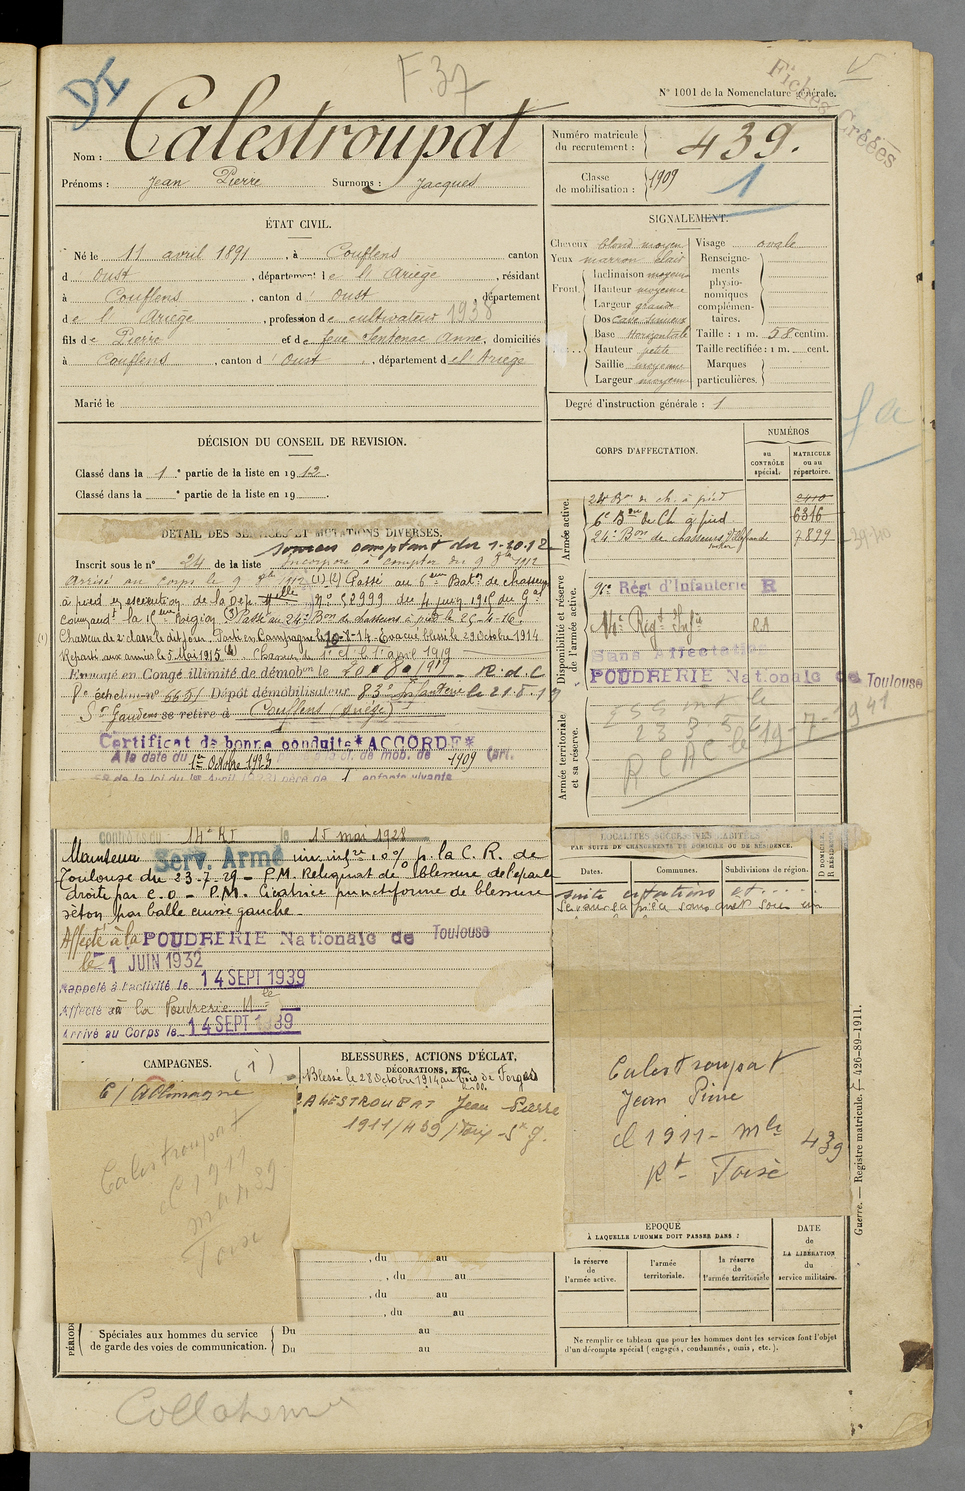 DI
F.37
V
Fiches Créées
N° 1001 de la Nomenclature générale.
Nom : Calestroupat
Prénoms : Jean Pierre Surnoms : Jacques
Numéro matricule du recrutement : 439.
Classe de mobilisation : 1909
1
ÉTAT CIVIL.
Né le 11 avril 1891, à Couflens canton
d' Oust, département de l'Ariège, résidant
à Couflens, canton d' Oust département
de l' Ariège, profession de cultivateur 1938
fils de Pierre et de feue Sentenac Anne, domiciliés
à Couflens, canton d' Oust, département de l'Ariège
Marié le
SIGNALEMENT.
Cheveux blond moyen
Yeux marron clair
Front. Inclinaison moyenne
Hauteur moyenne
Largeur grande
Dos
Base Horizontale
Hauteur petite
Saillie moyenne
Largeur moyenne
Visage ovale
Renseignements physionomiques complémentaires.
Taille : 1 m. 58 centim.
Taille rectifiée : 1 m. cent.
Marques particulières.
Degré d'instruction générale : 1
DÉCISION DU CONSEIL DE REVISION.
Classé dans la 1e partie de la liste en 1912.
Classé dans la e partie de la liste en 19
CORPS D'AFFECTATION.
NUMÉROS
au CONTRÔLE spécial.
MATRICULE ou au répertoire.
Armée active.
24 Bon de ch. à pied 2410
6e Bon de Ch à pied 6316
24e Bon de chasseurs 7899
Disponibilité et réserve de l'armée active.
Régt d'Infanterie R
14e Régt Infie
Sans Affectation
POUDRERIE Nationale de Toulouse
Armée territoriale et sa réserve.
19-7-1941
DÉTAIL DES SERVICES ET MUTATIONS DIVERSES.
services comptant du 1-10-12
Inscrit sous le n° 24 de la liste Incorporé à compter du 9 8bre 1912
Arrivé au corps le 9 8bre 1912 (1)(2) Passé au 6eme Baton de chasseurs
à pied en exécution de la Dep. Melle N° 52999 du 4 juin 1915 du Gal
commandt la 15eme Région (3) Passé au 24e Bon de chasseurs à pied le 25-4-16.
Chasseur de 2e classe le dit jour. Parti en Campagne le 10-8-14. Evacué blessé le 29 Octobre 1914.
Reparti aux armées le 5 Mai 1915 (4). Chasseur de 1e cl. le 1er avril 1919
Envoyé en Congé illimité de démobon le 20.8.1919
échelon n° 6631 Dépôt démobilisateur 83e Infanterie le 21.8.19
St Gaudens se retire à Couflens (Ariège)
Certificat de bonne conduite "ACCORDÉ"
A la date du 1er Octobre 1923 cl. de mob. de 1909
de la loi du 1er Avril 1923) père de 1 enfants vivants
14e Rt le 15 mai 1928
Maintenu Serv. Armé inv. infre 10% p. la C. R. de
Toulouse du 23-7-29 - P.M. Reliquat de blessure de l'épaule
droite par e. o. - P.M. Cicatrice punctiforme de blessure
séton par balle cuisse gauche -
Affecté à la POUDRERIE Nationale de Toulouse
le 1 JUIN 1932
Rappelé à l'activité le 14 SEPT 1939
Affecté à la Poudrerie Nle
Arrivé au Corps le 14 SEPT 1939
LOCALITÉS SUCCESSIVES HABITÉES
PAR SUITE DE CHANGEMENTS DE DOMICILE OU DE RÉSIDENCE.
Dates. Communes. Subdivisions de région.
D DOMICILE R RÉSIDENCE
suite citations et ....
Calestroupat
Jean Pierre
cl 1911 - mle 439
Rt - Foix
CAMPAGNES.
(1)
C/ Allemagne
BLESSURES, ACTIONS D'ÉCLAT, DÉCORATIONS, ETC.
Blessé le 28 Octobre 1914 au bois de Forges
CALESTROUPAT Jean Pierre
1911/439/Foix-St G.
Calestroupat
cl 1911
m 439
Foix
, du au
, du au
, du au
, du au
PÉRIODES
Spéciales aux hommes du service de garde des voies de communication.
Du au
Du au
ÉPOQUE
À LAQUELLE L'HOMME DOIT PASSER DANS :
la réserve de l'armée active.
l'armée territoriale.
la réserve de l'armée territoriale
DATE de LA LIBÉRATION du service militaire.
Ne remplir ce tableau que pour les hommes dont les services font l'objet
d'un décompte spécial (engagés, condamnés, omis, etc.).
Guerre. — Registre matricule. — 426-89-1911.